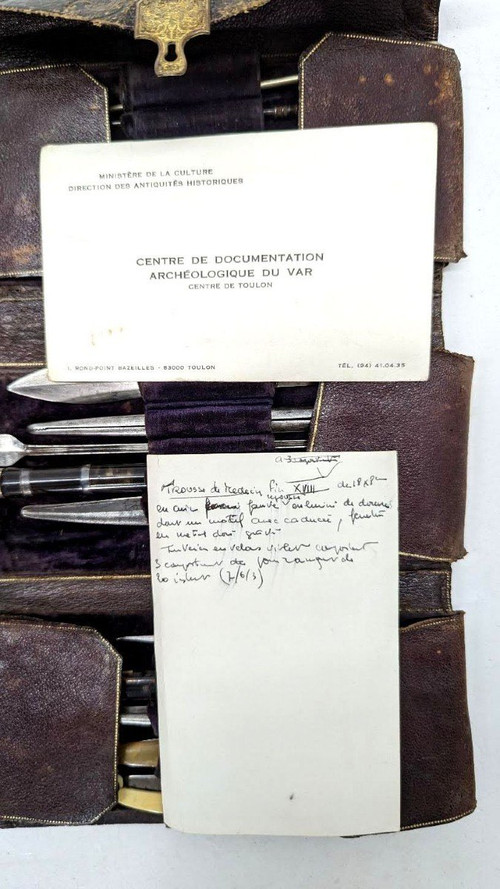 MINISTÈRE DE LA CULTURE
DIRECTION DES ANTIQUITÉS HISTORIQUES
CENTRE DE DOCUMENTATION
ARCHÉOLOGIQUE DU VAR
CENTRE DE TOULON
1, ROND-POINT BAZEILLES - 83000 TOULON
TÉL. (94) 41.04.35
Trousse de Medecin Fin XVIII de 18x8 cm
en cuir fauve de
dont un motif avec caducée,
en métal doré gravé
Intérieur en velours violet comportant
3 de
20 (7/6/3)